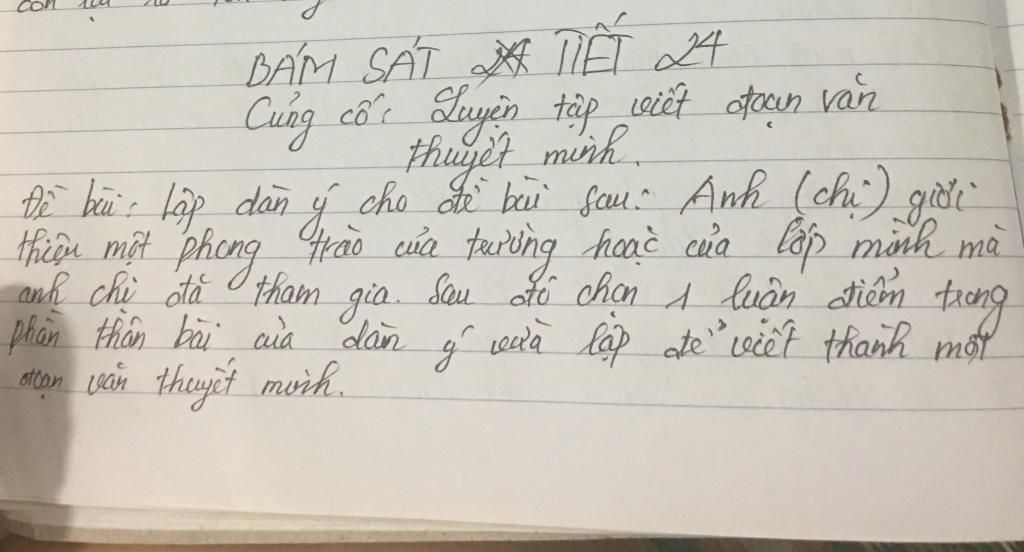 BÁM SÁT TIẾT 24
Củng cố: Luyện tập viết đoạn văn
thuyết minh.
Đề bài: lập dàn ý cho đề bài sau: Anh (chị) giới
thiệu một phong trào của trường hoặc của lớp mình mà
anh chị đã tham gia. Sau đó chọn 1 luận điểm trong
phần thân bài của dàn ý vừa lập để viết thành một
đoạn văn thuyết minh.